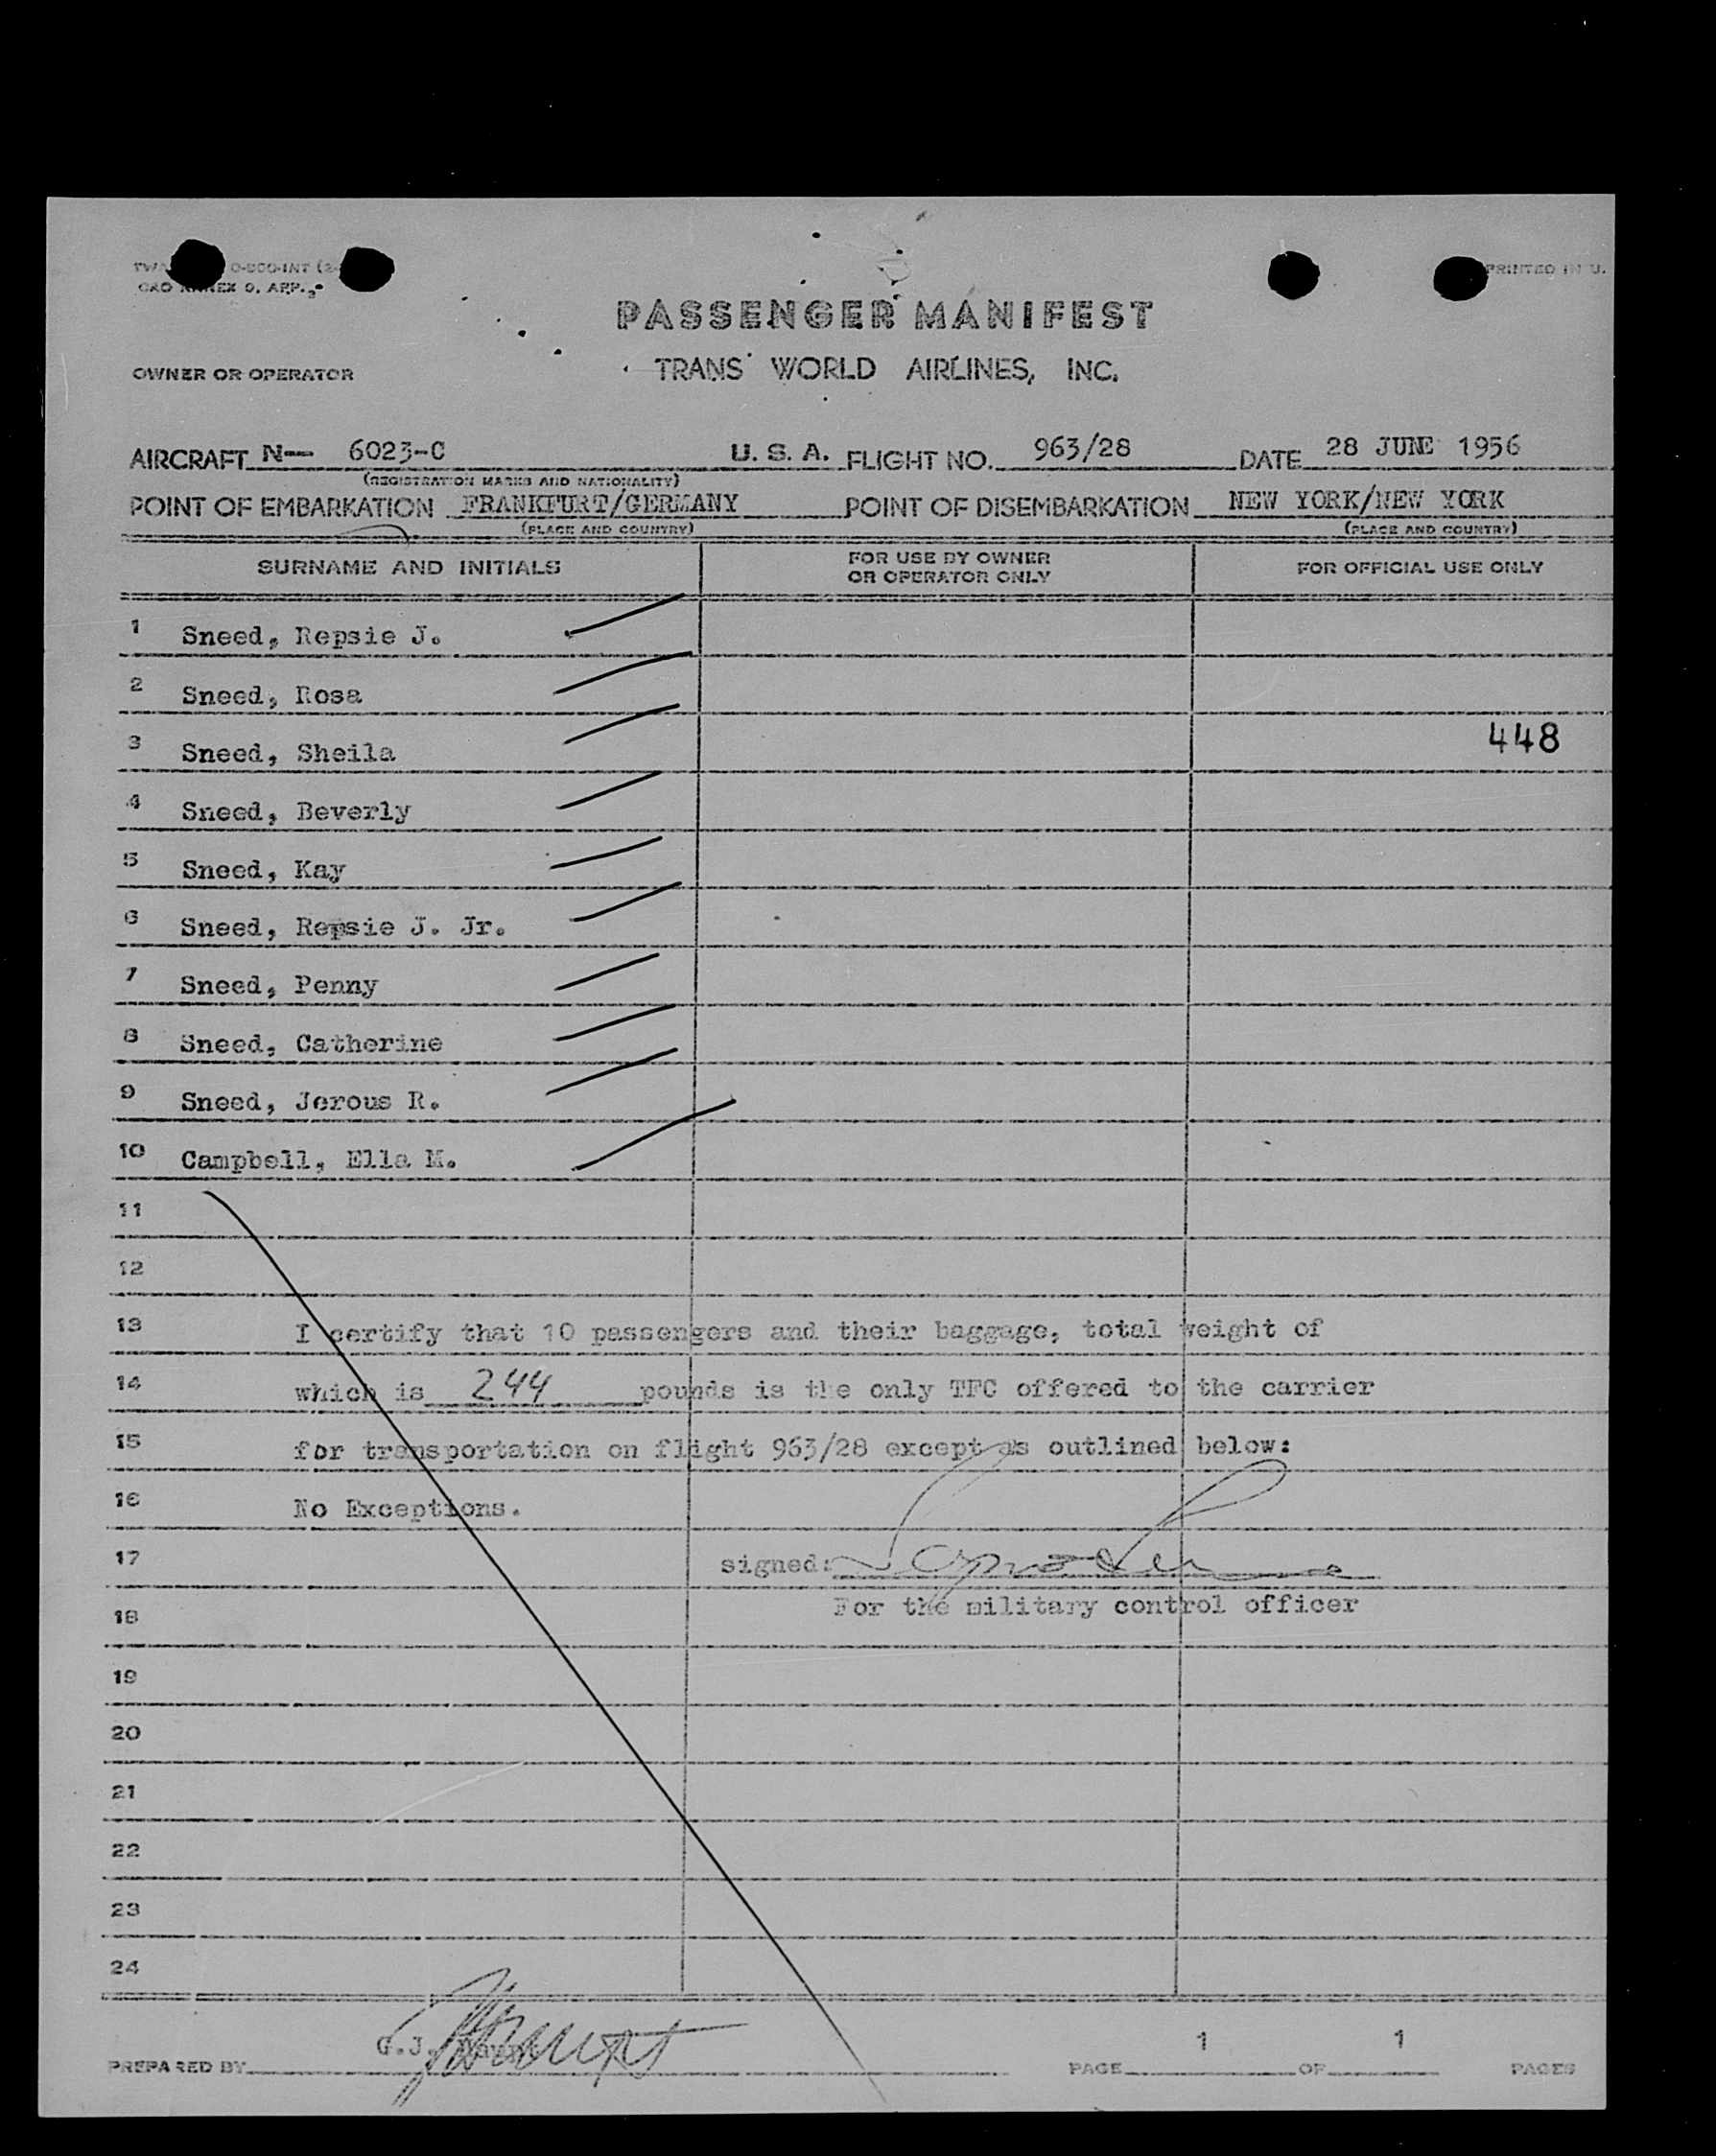 PRINTED IN U.
PASSENGER MANIFEST
OWNER OR OPERATOR TRANS WORLD AIRLINES, INC.
AIRCRAFT N— 6023-C U. S. A. FLIGHT NO. 963/28 DATE 28 JUNE 1956
(REGISTRATION MARKS AND NATIONALITY)
POINT OF EMBARKATION FRANKFURT/GERMANY POINT OF DISEMBARKATION NEW YORK/NEW YORK
(PLACE AND COUNTRY) (PLACE AND COUNTRY)
SURNAME AND INITIALS FOR USE BY OWNER OR OPERATOR ONLY FOR OFFICIAL USE ONLY
1 Sneed, Repsie J.
2 Sneed, Rosa
3 Sneed, Sheila 448
4 Sneed, Beverly
5 Sneed, Kay
6 Sneed, Repsie J. Jr.
7 Sneed, Penny
8 Sneed, Catherine
9 Sneed, Jerous R.
10 Campbell, Ella M.
11
12
13 I certify that 10 passengers and their baggage, total weight of
14 which is 244 pounds is the only TFC offered to the carrier
15 for transportation on flight 963/28 except as outlined below:
16 No Exceptions.
17 signed:
18 For the military control officer
19
20
21
22
23
24
PREPARED BY G.J. PAGE 1 OF 1 PAGES